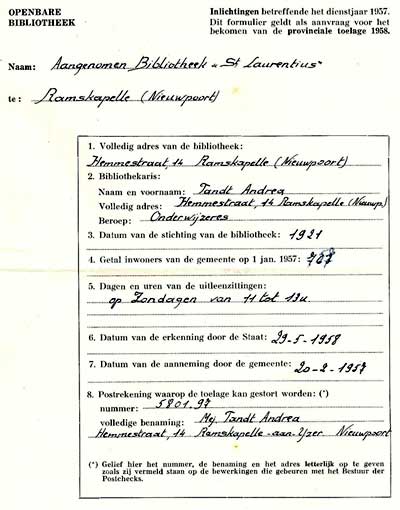 OPENBARE
BIBLIOTHEEK
Inlichtingen betreffende het dienstjaar 1957.
Dit formulier geldt als aanvraag voor het
bekomen van de provinciale toelage 1958.
Naam: Aangenomen Bibliotheek "St Laurentius"
te: Ramskapelle (Nieuwpoort)
1. Volledig adres van de bibliotheek:
Hemmestraat, 14 Ramskapelle (Nieuwpoort)
2. Bibliothekaris:
Naam en voornaam: Tandt Andrea
Volledig adres: Hemmestraat, 14 Ramskapelle (Nieuwp)
Beroep: Onderwijzeres
3. Datum van de stichting van de bibliotheek: 1921
4. Getal inwoners van de gemeente op 1 jan. 1957:
5. Dagen en uren van de uitleenzittingen:
op Zondagen van 11 tot 13u.
6. Datum van de erkenning door de Staat: 29-5-1958
7. Datum van de aanneming door de gemeente: 20-2-1957
8. Postrekening waarop de toelage kan gestort worden: (*)
nummer: 5801.97
volledige benaming: Mej. Tandt Andrea
Hemmestraat, 14 Ramskapelle-aan-Yzer Nieuwpoort
(*) Gelief hier het nummer, de benaming en het adres letterlijk op te geven
zoals zij vermeld staan op de bewerkingen die gebeuren met het Bestuur der
Postchecks.